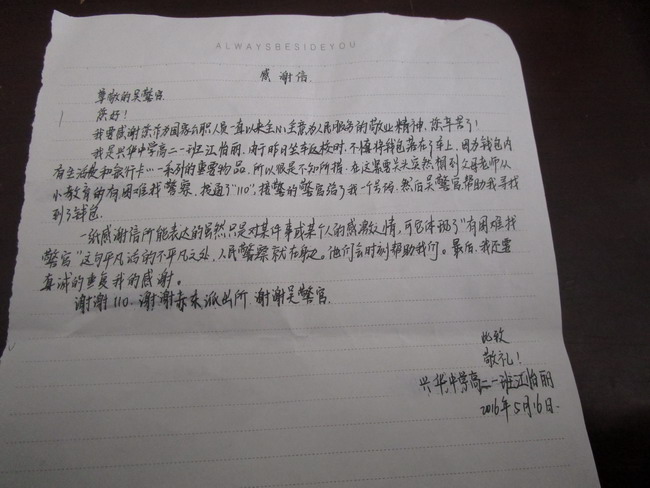 ALWAYSBESIDEYOU
感谢信
尊敬的吴警官
您好!
我要感谢您作为国家公职人员一直以来全心全意为人民服务的敬业精神,您辛苦了!
我是兴华中学高二一班江怡丽,由于昨日坐车返校时,不慎将钱包落在了车上,因为钱包内
有生活费和银行卡…一系列的重要物品,所以很是不知所措,在这紧要关头突然想到父母老师从
小教育的有困难找警察,拨通了“110”,接警的警官给了我一个号码,然后吴警官帮助我寻找
到了钱包.
一纸感谢信所能表达的虽然只是对某件事或某个人的感激之情,可它体现了“有困难找
警官”这句平凡话的不平凡之处,人民警察就在身边.他们会时刻帮助我们。最后,我还要
真诚的重复我的感谢。
谢谢110 谢谢赤东派出所 谢谢吴警官
此致
敬礼!
兴华中学高二一班江怡丽
2016年5月16日.